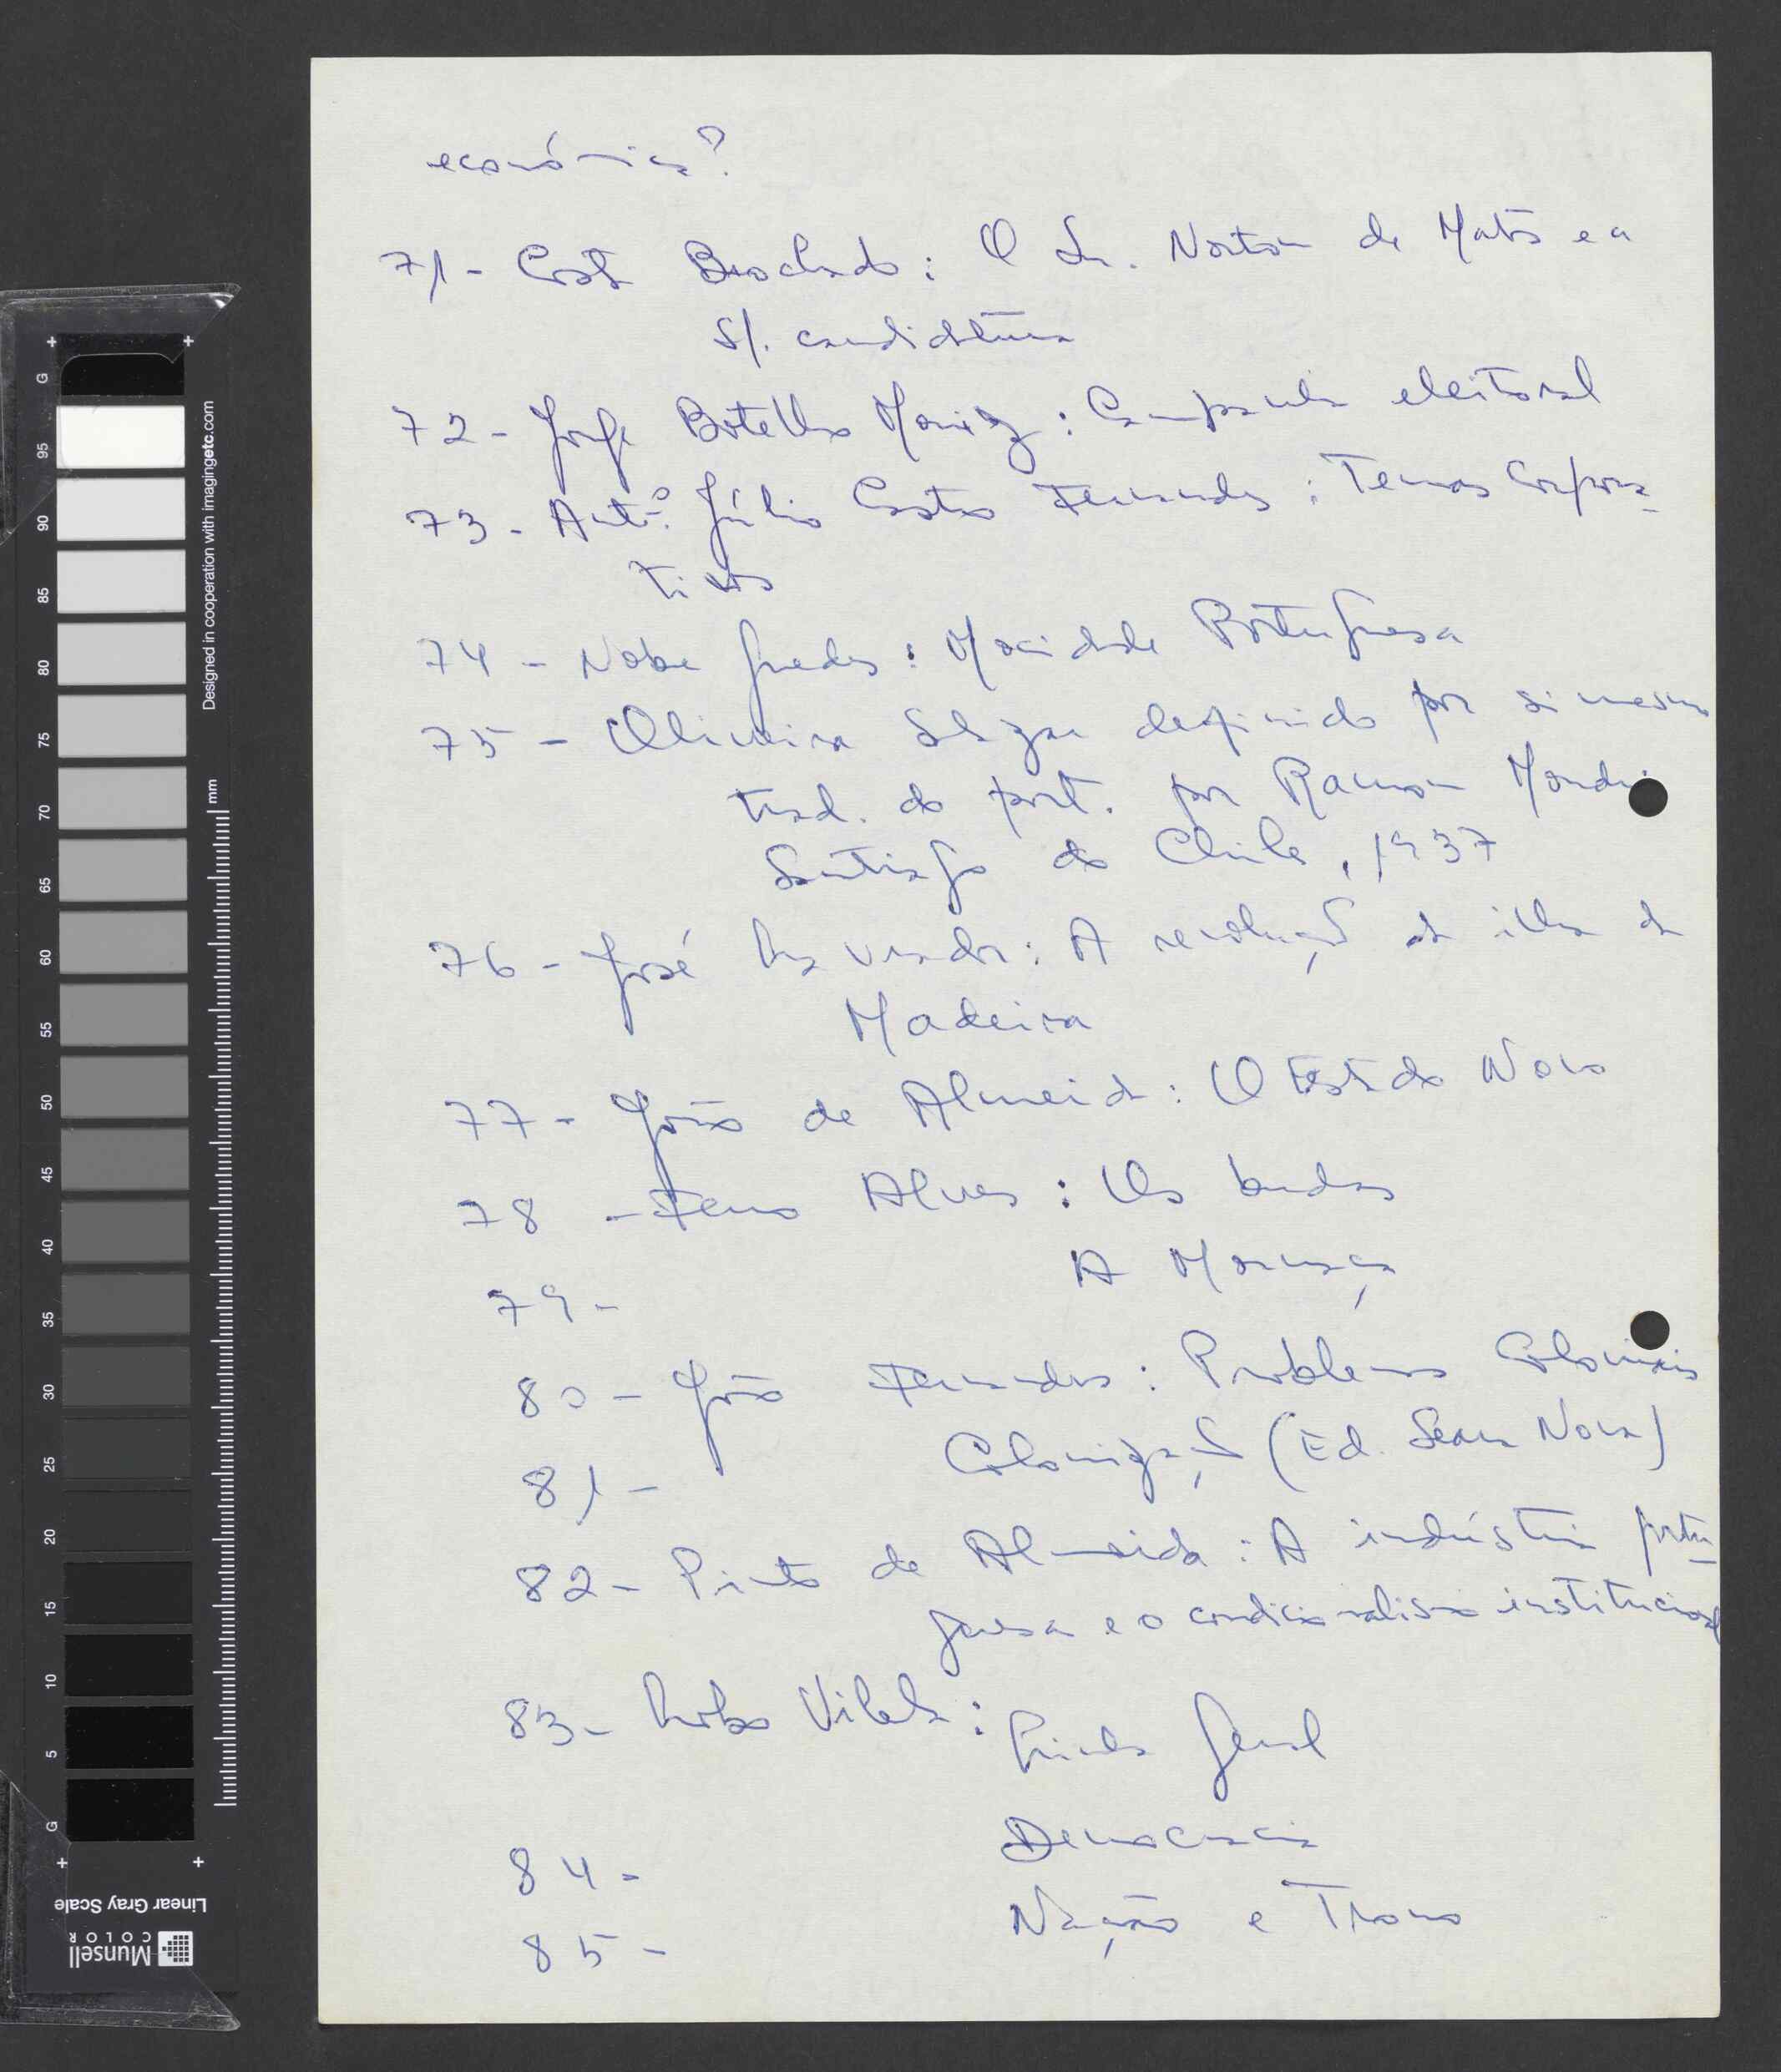 económica?
71 - Costa Brochado: O Sr. Norton de Matos e a
s/. candidatura
72 - Jorge Botelho Moniz: Campanha eleitoral
73 - Antº. Júlio Castro Fernandes: Temas Corpora-
tivos
74 - Nobre Guedes: Mocidade Portuguesa
75 - Oliveira Salazar definido por si mesmo
trad. do port. por Ramon
Santiago do Chile, 1937
76 - José Lavrador: A revolução da ilha da
Madeira
77 - João de Almeida: O Estado Novo
78 - Ferro Alves: Os budas
79 - A Mornaça
80 - João Fernandes: Problemas Coloniais
81 - Colonização (Ed. Seara Nova)
82 - Pinto de Almeida: A indústria portu-
guesa e o condicionalismo institucional
83 - Lobo Vilela: Geral
84 - Democracia
85 - Nação e
G 95 90 85 80 75 70 65 60 55 50 45 40 35 30 25 20 15 10 5 G
mm
Designed in cooperation with imagingetc.com
Linear Gray Scale
Munsell
COLOR